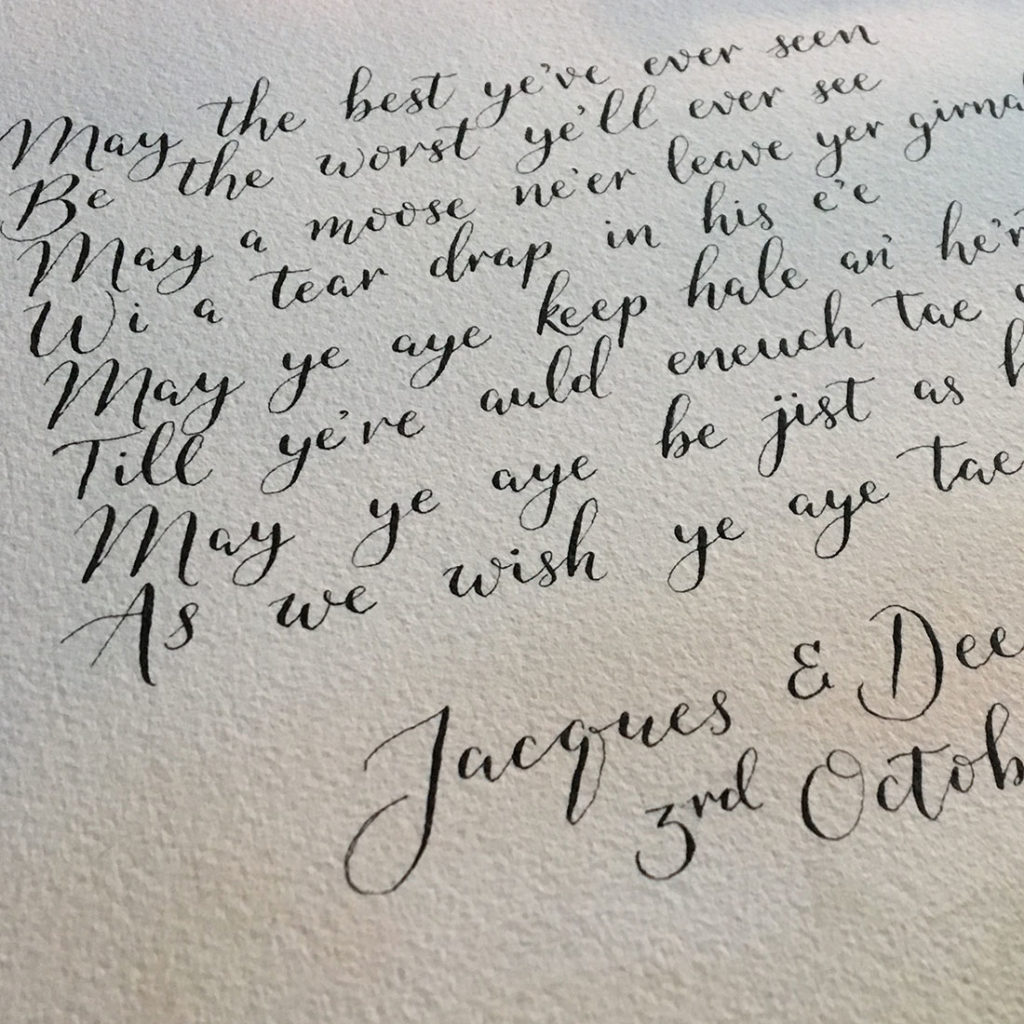 May the best ye've ever seen
Be the worst ye'll ever see
May a moose ne'er leave yer girna
Wi a tear drap in his e'e
May ye aye keep hale an'
Till ye're auld eneuch tae
May ye aye be jist as
As we wish ye aye tae
Jacques & Dee
3rd Octob